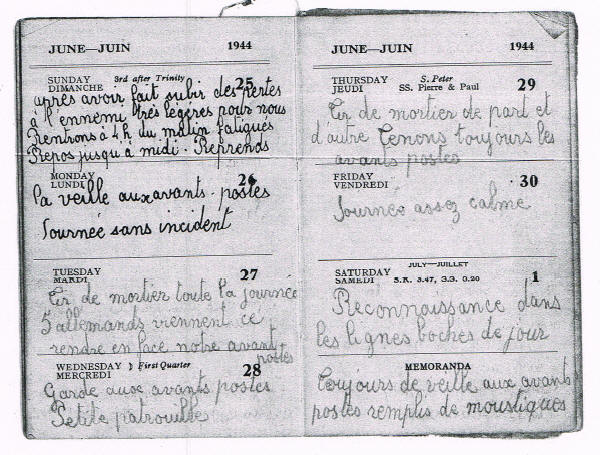 JUNE—JUIN 1944
SUNDAY 3rd after Trinity 25
DIMANCHE
après avoir fait subir des pertes
à l'ennemi très légères pour nous
Rentrons à 4h du matin fatigués
Repos jusqu'à midi. Reprends
MONDAY 26
LUNDI
la veille aux avants-postes
Journée sans incident
TUESDAY 27
MARDI
Tir de mortier toute la journée
5 allemands viennent ce
rendre en face notre avant
postes
WEDNESDAY ☽ First Quarter 28
MERCREDI
Garde aux avants postes
Petite patrouille
JUNE—JUIN 1944
THURSDAY S. Peter 29
JEUDI SS. Pierre & Paul
Tir de mortier de part et
d'autre Tenons toujours les
avants postes
FRIDAY 30
VENDREDI
Journée assez calme
JULY—JUILLET
SATURDAY 1
SAMEDI S.R. 3.47, S.S. 8.20
Reconnaissance dans
les lignes boches de jour
MEMORANDA
Toujours de veille aux avants
postes remplis de moustiques